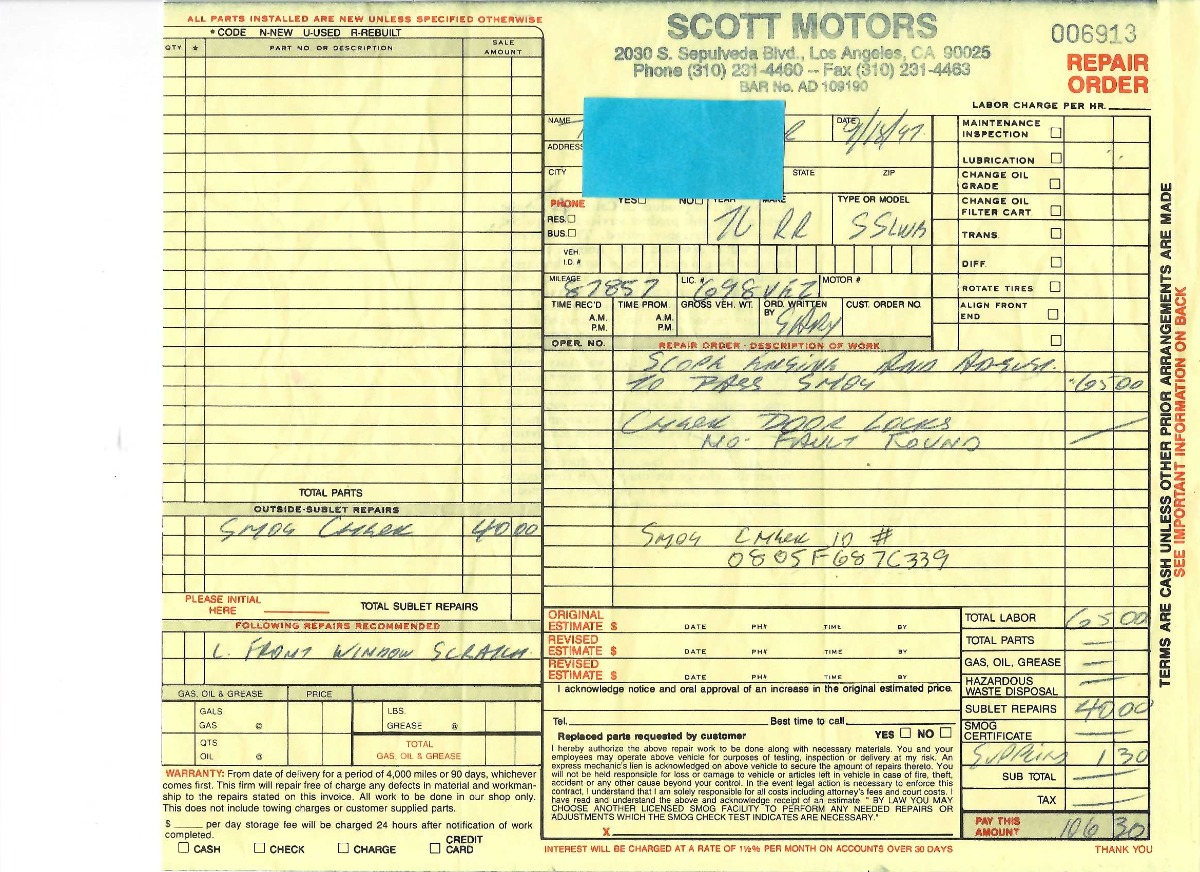 ALL PARTS INSTALLED ARE NEW UNLESS SPECIFIED OTHERWISE
* CODE N-NEW U-USED R-REBUILT
QTY * PART NO. OR DESCRIPTION SALE AMOUNT
TOTAL PARTS
OUTSIDE-SUBLET REPAIRS
SMOG CHECK 40 00
PLEASE INITIAL HERE TOTAL SUBLET REPAIRS
FOLLOWING REPAIRS RECOMMENDED
L. FRONT WINDOW SCRATCH
GAS, OIL & GREASE PRICE
GALS GAS @ LBS. GREASE @
QTS OIL @ TOTAL GAS, OIL & GREASE
WARRANTY: From date of delivery for a period of 4,000 miles or 90 days, whichever
comes first. This firm will repair free of charge any defects in material and workman-
ship to the repairs stated on this invoice. All work to be done in our shop only.
This does not include towing charges or customer supplied parts.
$ ____ per day storage fee will be charged 24 hours after notification of work
completed.
CASH CHECK CHARGE CREDIT CARD
SCOTT MOTORS
2030 S. Sepulveda Blvd., Los Angeles, CA 90025
Phone (310) 231-4460 -- Fax (310) 231-4463
BAR No. AD 109190
006913
REPAIR
ORDER
LABOR CHARGE PER HR.
NAME R DATE 9/18/97
ADDRESS
CITY STATE ZIP
PHONE YES NO YEAR MAKE TYPE OR MODEL
RES.
BUS.
76 RR SSLWB
VEH. I.D. #
MILEAGE 87857 LIC. # 698VEZ MOTOR #
TIME REC'D A.M. P.M. TIME PROM. A.M. P.M. GROSS VEH. WT. ORD. WRITTEN BY GARY CUST. ORDER NO.
MAINTENANCE INSPECTION
LUBRICATION
CHANGE OIL GRADE
CHANGE OIL FILTER CART.
TRANS.
DIFF.
ROTATE TIRES
ALIGN FRONT END
OPER. NO. REPAIR ORDER - DESCRIPTION OF WORK
SCOPE ENGINE AND ADJUST.
TO PASS SMOG 65 00
CHECK DOOR LOCKS
NO FAULT FOUND
SMOG CHECK ID #
0805F687C339
ORIGINAL ESTIMATE $ DATE PH# TIME BY
REVISED ESTIMATE $ DATE PH# TIME BY
REVISED ESTIMATE $ DATE PH# TIME BY
I acknowledge notice and oral approval of an increase in the original estimated price.
Tel. Best time to call
Replaced parts requested by customer YES NO
I hereby authorize the above repair work to be done along with necessary materials. You and your
employees may operate above vehicle for purposes of testing, inspection or delivery at my risk. An
express mechanic's lien is acknowledged on above vehicle to secure the amount of repairs thereto. You
will not be held responsible for loss or damage to vehicle or articles left in vehicle in case of fire, theft,
accident or any other cause beyond your control. In the event legal action is necessary to enforce this
contract, I understand that I am solely responsible for all costs including attorney's fees and court costs. I
have read and understand the above and acknowledge receipt of an estimate. " BY LAW YOU MAY
CHOOSE ANOTHER LICENSED SMOG FACILITY TO PERFORM ANY NEEDED REPAIRS OR
ADJUSTMENTS WHICH THE SMOG CHECK TEST INDICATES ARE NECESSARY."
X
INTEREST WILL BE CHARGED AT A RATE OF 1½% PER MONTH ON ACCOUNTS OVER 30 DAYS
TOTAL LABOR 65 00
TOTAL PARTS —
GAS, OIL, GREASE —
HAZARDOUS WASTE DISPOSAL —
SUBLET REPAIRS 40 00
SMOG CERTIFICATE —
SUPPLIES 1 30
SUB TOTAL —
TAX —
PAY THIS AMOUNT 106 30
THANK YOU
TERMS ARE CASH UNLESS OTHER PRIOR ARRANGEMENTS ARE MADE
SEE IMPORTANT INFORMATION ON BACK